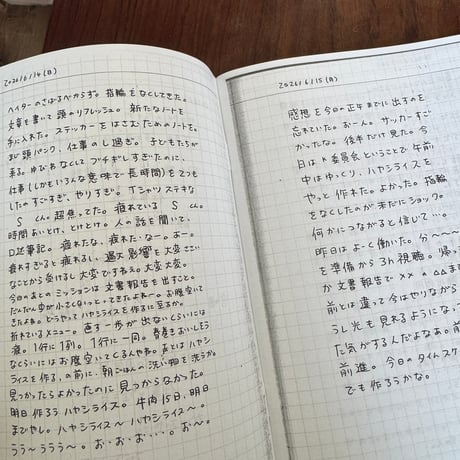 2026/6/14(日)
ヘイターのさばるべからず。指輪をなくしてきた。
文章を書いて頭のリフレッシュ。新たなノートを
手に入れた。ステッカーをはさむためのノートを。
まじ頭パンク、仕事のし過ぎ。子どもたちが
来る。ゆびわなくしてブチギレしすぎたのに、
仕事(しかもいろんな意味で長時間)を2つも
したのすごすぎ、やりすぎ。Tシャツステキな
S くん。超焦ってた。疲れている S くん。
時間あいけど、とけとけ。人の話を聞いて、
口述筆記。疲れたな、疲れたなー。よー。
疲れすぎると疲れるし、過大影響を大きさい
なことから受けるし大変ですねぇ。大変大変。
今日のあとのミッションは文書報告を出すこと。
だんだん空が小さくなってきたよねー。お腹空いて
きたよね。どうやってハヤシライスを作るに至るか。
折れているメニュー。直す一歩が出ないくらいには
凝。1行に1列。1行に一円。春巻きおいしそう
なくらいにはお腹空いてくるんやね。
ライスを作る、の前に、朝ごはんの洗い物を洗うか。
見つかったらよかったのに見つからなかった。
明日作ろうハヤシライス。牛肉15日、明日
までやし。ハヤシライス〜ハヤシライス〜。
うう〜ううう〜。お・お・お・・・。お〜。
2026/6/15(月)
感想を今日の正午までに出すのを
忘れていた。おーん。サッカーすご
かったな。後半だけ見た。今
日は木委員会ということで午前
中はゆっくり、ハヤシライスを
やっと作れた。よかった。指輪
をなくしたのが未だにショック。
何かにつながると信じて…。
昨日はよーく働いた。分〜〜〜
を準備から3h視聴。帰っ
か文書報告で××の△△ま
前とは違って今はやりながら
うし光も見れるようになっ
た気がするんだよなあ。前
前進。今日のタイムスケ
でも作ろうかな。